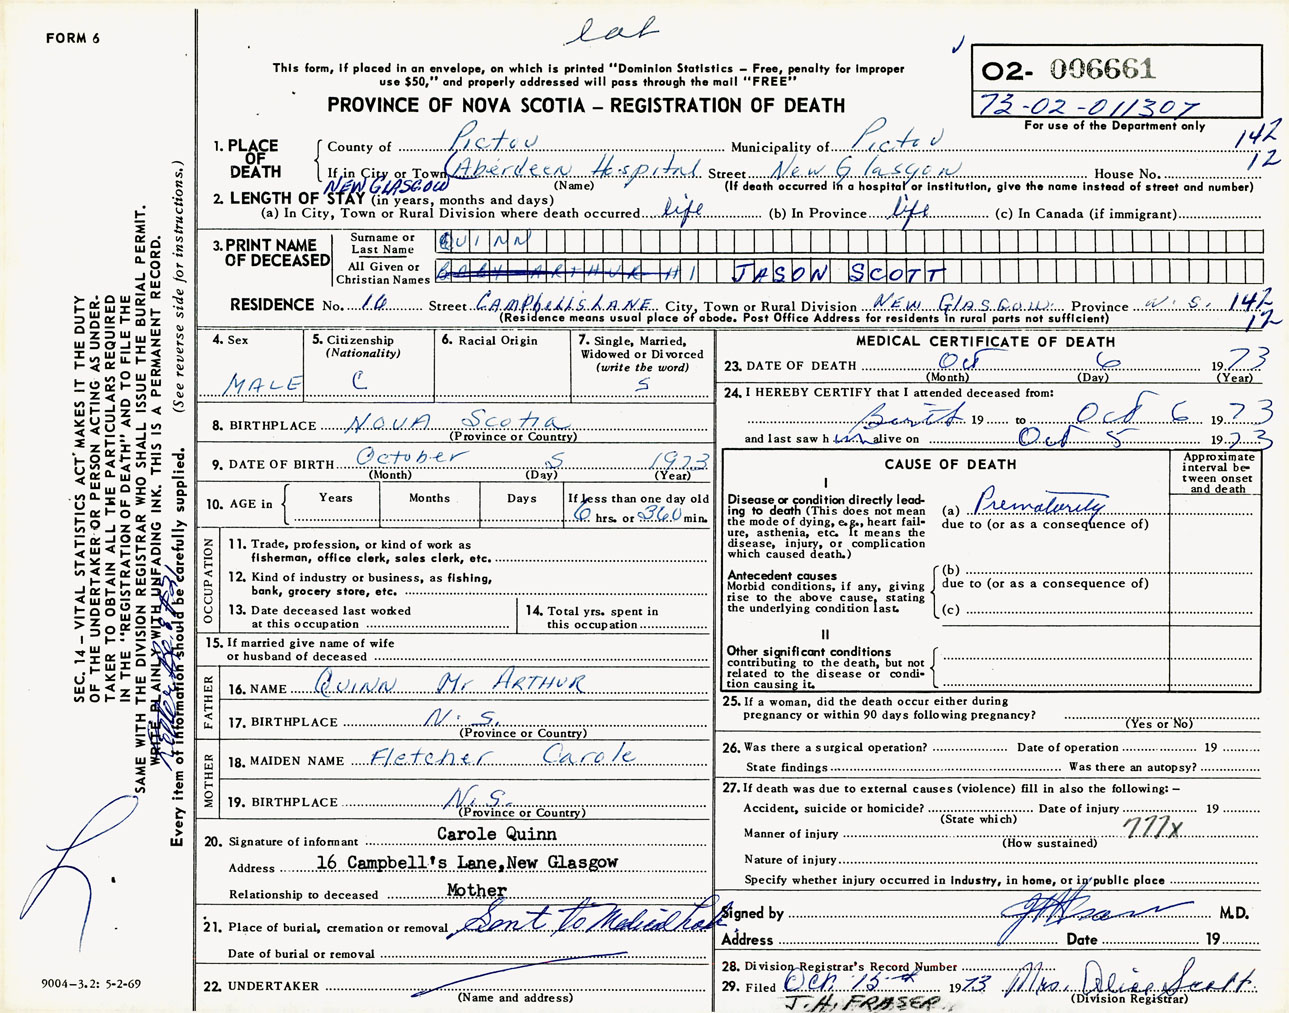 FORM 6
This form, if placed in an envelope, on which is printed "Dominion Statistics – Free, penalty for improper
use $50," and properly addressed will pass through the mail "FREE"
PROVINCE OF NOVA SCOTIA – REGISTRATION OF DEATH
O2- 006661
73-02-011307
For use of the Department only
1. PLACE OF DEATH
County of Pictou Municipality of Pictou 142
If in City or Town (Aberdeen Hospital Street New Glasgow House No. 12
NEW GLASGOW (Name) (If death occurred in a hospital or institution, give the name instead of street and number)
2. LENGTH OF STAY (in years, months and days)
(a) In City, Town or Rural Division where death occurred life (b) In Province life (c) In Canada (if immigrant)
3. PRINT NAME OF DECEASED
Surname or Last Name QUINN
All Given or Christian Names BABY ARTHUR #1 JASON SCOTT
RESIDENCE No. 16 Street CAMPBELLS LANE City, Town or Rural Division NEW GLASGOW Province N.S. 142
(Residence means usual place of abode. Post Office Address for residents in rural parts not sufficient) 12
4. Sex
MALE
5. Citizenship
(Nationality)
C
6. Racial Origin
7. Single, Married,
Widowed or Divorced
(write the word)
S
8. BIRTHPLACE NOVA Scotia
(Province or Country)
9. DATE OF BIRTH October 5 1973
(Month) (Day) (Year)
10. AGE in Years Months Days If less than one day old
6 hrs. or 360 min.
OCCUPATION
11. Trade, profession, or kind of work as
fisherman, office clerk, sales clerk, etc.
12. Kind of industry or business, as fishing,
bank, grocery store, etc.
13. Date deceased last worked
at this occupation
14. Total yrs. spent in
this occupation
15. If married give name of wife
or husband of deceased
FATHER
16. NAME QUINN Mr ARTHUR
17. BIRTHPLACE N.S.
(Province or Country)
MOTHER
18. MAIDEN NAME Fletcher Carole
19. BIRTHPLACE N.S.
(Province or Country)
20. Signature of informant Carole Quinn
Address 16 Campbell's Lane,New Glasgow
Relationship to deceased Mother
21. Place of burial, cremation or removal Sent to Medical
Date of burial or removal
22. UNDERTAKER
(Name and address)
MEDICAL CERTIFICATE OF DEATH
23. DATE OF DEATH Oct 6 1973
(Month) (Day) (Year)
24. I HEREBY CERTIFY that I attended deceased from:
Birth 19 to Oct 6 1973
and last saw h im alive on Oct 5 1973
CAUSE OF DEATH
Approximate
interval be-
tween onset
and death
I
Disease or condition directly lead-
ing to death (This does not mean
the mode of dying, e.g., heart fail-
ure, asthenia, etc. It means the
disease, injury, or complication
which caused death.)
(a) Prematurity
due to (or as a consequence of)
Antecedent causes
Morbid conditions, if any, giving
rise to the above cause, stating
the underlying condition last.
(b)
due to (or as a consequence of)
(c)
II
Other significant conditions
contributing to the death, but not
related to the disease or condi-
tion causing it.
25. If a woman, did the death occur either during
pregnancy or within 90 days following pregnancy?
(Yes or No)
26. Was there a surgical operation? Date of operation 19
State findings Was there an autopsy?
27. If death was due to external causes (violence) fill in also the following: –
Accident, suicide or homicide? Date of injury 19
(State which)
Manner of injury 777x
(How sustained)
Nature of injury
Specify whether injury occurred in industry, in home, or in public place
Signed by M.D.
Address Date 19
28. Division Registrar's Record Number
29. Filed Oct. 15th 1973 Mrs. Alice Scott
(Division Registrar)
J.H. FRASER
SEC. 14 – VITAL STATISTICS ACT MAKES IT THE DUTY
OF THE UNDERTAKER OR PERSON ACTING AS UNDER-
TAKER TO OBTAIN ALL THE PARTICULARS REQUIRED
IN THE "REGISTRATION OF DEATH" AND TO FILE THE
SAME WITH THE DIVISION REGISTRAR WHO SHALL ISSUE THE BURIAL PERMIT.
WRITE PLAINLY WITH UNFADING INK. THIS IS A PERMANENT RECORD.
Every item of information should be carefully supplied. (See reverse side for instructions.)
9004–3.2: 5-2-69